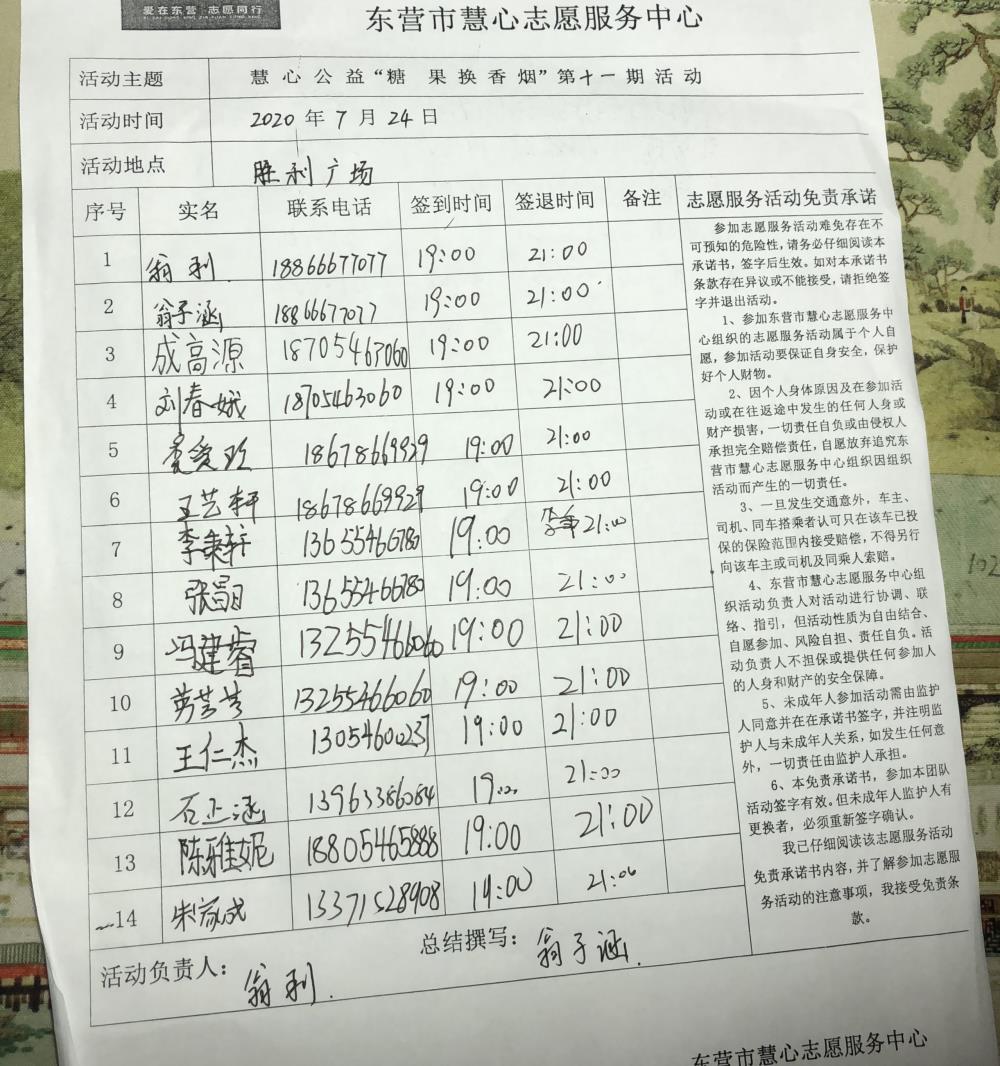 爱在东营 志愿同行
东营市慧心志愿服务中心
活动主题 慧心公益“糖 果换香烟”第十一期活动
活动时间 2020年7月24日
活动地点 胜利广场
序号 实名 联系电话 签到时间 签退时间 备注 志愿服务活动免责承诺
1 翁利 18866677077 19:00 21:00
2 翁子涵 18866677077 19:00 21:00
3 成高源 18705463060 19:00 21:00
4 刘春娥 18705463060 19:00 21:00
5 18678669929 19:00 21:00
6 王艺轩 18678669929 19:00 21:00
7 李秉轩 13655466780 19:00 21:00
8 张昌日 13655466780 19:00 21:00
9 冯建睿 13255466060 19:00 21:00
10 13255466060 19:00 21:00
11 王仁杰 13054600237 19:00 21:00
12 石正涵 13963386084 19:00 21:00
13 陈雅妮 18805465888 19:00 21:00
14 朱家成 13371528908 19:00 21:00
参加志愿服务活动难免存在不
可预知的危险性,请务必仔细阅读本
承诺书,签字后生效。如对本承诺书
条款存在异议或不能接受,请拒绝签
字并退出活动。
1、参加东营市慧心志愿服务中
心组织的志愿服务活动属于个人自
愿,参加活动要保证自身安全,保护
好个人财物。
2、因个人身体原因及在参加活
动或在往返途中发生的任何人身或
财产损害,一切责任自负或由侵权人
承担完全赔偿责任,自愿放弃追究东
营市慧心志愿服务中心组织因组织
活动而产生的一切责任。
3、一旦发生交通意外,车主、
司机、同车搭乘者认可只在该车已投
保的保险范围内接受赔偿,不得另行
向该车主或司机及同乘人索赔。
4、东营市慧心志愿服务中心组
织活动负责人对活动进行协调、联
络、指引,但活动性质为自由结合、
自愿参加、风险自担、责任自负。活
动负责人不担保或提供任何参加人
的人身和财产的安全保障。
5、未成年人参加活动需由监护
人同意并在在承诺书签字,并注明监
护人与未成年人关系,如发生任何意
外,一切责任由监护人承担。
6、本免责承诺书,参加本团队
活动签字有效。但未成年人监护人有
更换者,必须重新签字确认。
我已仔细阅读该志愿服务活动
免责承诺书内容,并了解参加志愿服
务活动的注意事项,我接受免责条
款。
活动负责人: 翁利. 总结撰写: 翁子涵.
东营市慧心志愿服务中心